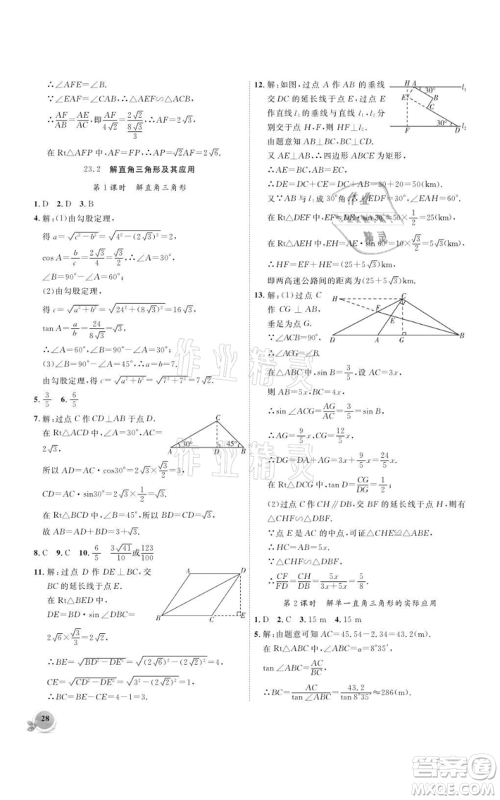 ∴∠AFE=∠B.
又∵∠EAF=∠CAB,∴△AEF∽△ACB,
∴AF/AB=AE/AC,即AF/(4√2)=(2√(2/3))/(8√3),∴AF=2√3,
∴在Rt△AFP中,AP=FP=√6.
23.2 解直角三角形及其应用
第1课时 解直角三角形
1. D 2. D 3. B
4. 解:(1)由勾股定理,
得a=√(c²-b²)=√(4²-(2√3)²)=2,
cosA=b/c=2√3/4=√3/2,∴∠A=30°,
∠B=90°-∠A=90°-30°=60°.
(2)由勾股定理,
得c=√(a²+b²)=√(24²+(8√3)²)=16√3,
tanA=a/b=24/(8√3)=√3,
∴∠A=60°,∴∠B=90°-∠A=30°.
(3)∠B=90°-∠A=45°,∴a=b=7.
由勾股定理,得c=√(a²+b²)=√(7²+7²)=7√2.
5. 3/5 6. 6/5
7. 解:过点C作CD⊥AB于点D.
在Rt△ACD中,∠A=30°,
AC=2√3,
∴AD=AC·cosA=2√3×√3/2=3,
CD=AC·sin30°=2√3×1/2=√3.
在Rt△BCD中,∠B=45°,∴BD=CD=√3.
故AB=AD+BD=3+√3.
8. C 9. C 10. 6/5 3√41/10或123/100
11. 解:过点D作DE⊥BC,交BC的延长线于点E.
在Rt△BED中,
DE=BD·sin∠DBC=
2√6×√3/3=2√2,
∴BE=√(BD²-DE²)=√((2√6)²-(2√2)²)=4,
CE=√(CD²-DE²)=√(3²-(2√2)²)=1,
∴BC=BE-CE=4-1=3.
28
12. 解:如图,过点A作AB的垂线交DC的延长线于点E,过点E作直线l₁的垂线与直线l₁,l₂分别交于点H,F,则HF⊥l₂.
由题意知AB⊥BC,BC⊥CD,
又AE⊥AB,∴四边形ABCE为矩形,
∴AE=BC,AB=EC,
∴DE=EC+CD=AB+CD=20+30=50(km).
又AB与l₁成30°角,
∴∠EDF=30°,∠EAH=60°.
在Rt△DEF中,EF=DE·sin30°=50×1/2=25(km),
在Rt△AEH中,EH=AE·sin60°=10×√3/2=5√3(km),
∴HF=EF+HE=(25+5√3)km,
即两高速公路间的距离为(25+5√3)km.
13. 解:(1)过点C作CG⊥AB,垂足为点G.
∵∠ACB=90°,
∴∠ACG=∠B.
在Rt△ABC中,sinB=3/5,设AC=3x,AB=5x,
则BC=4x,
∴sin∠ACG=AG/AC=3/5=sinB,
∴AG=9/5x,CG=12/5x,
∴DG=DA+AG=3x+9/5x=24/5x.
在Rt△DCG中,tanD=CG/DG=1/2.
(2)过点C作CH∥DB,交BF的延长线于点H,则有△CHF∽△DBF.
又∵点E是AC的中点,可证△CHE≌△ABE,
∴HC=AB=5x.
由△CHF∽△DBF,
∴CF/FD=CH/DB=5x/(3x+5x)=5/8.
第2课时 解单一直角三角形的实际应用
1. D 2. C 3. 15 m 4. 15 m
5. 解:由题意可知AC=45.54-2.34=43.2(m).
在Rt△ABC中,∠ABC=α=8°35′,
tan∠ABC=AC/BC,
∴BC=AC/tan∠ABC=43.2/tan8°35′≈286(m).